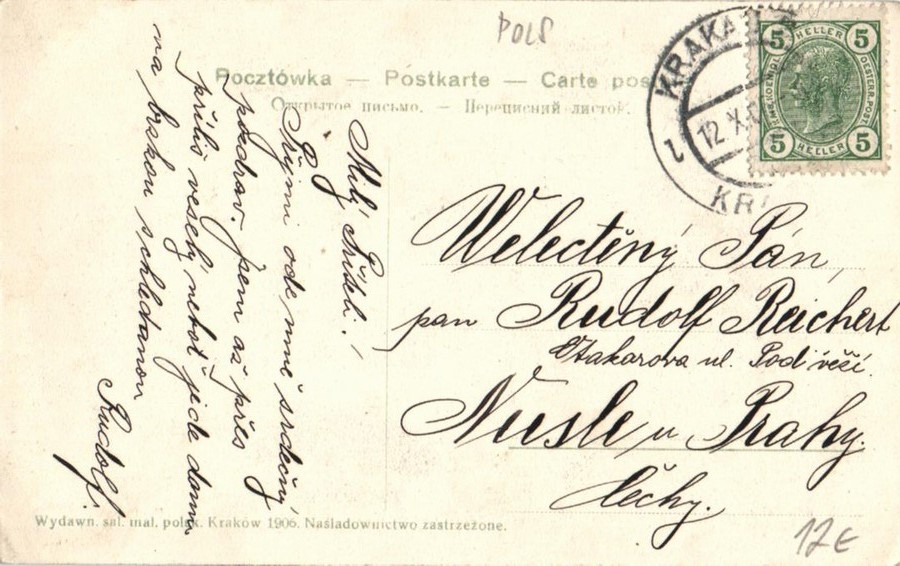 POLS
Pocztówka — Postkarte — Carte pos
Открытое письмо. — Переписний листок.
KRAKA
12 X
1
KR
5 HELLER 5
5 HELLER 5
Milý Příteli!
Přijmi ode mne srdečný
pozdrav. Jsem až přes
příliš veselý neboť jede dama
na brzkou shledanou
Rudolf.
Welectěný Pán,
pan Rudolf Reichert
Otakarova ul. Pod věží.
Nusle u Prahy.
Čechy.
Wydawn. sal. mal. polsk. Kraków 1906. Naśladownictwo zastrzeżone.
17€